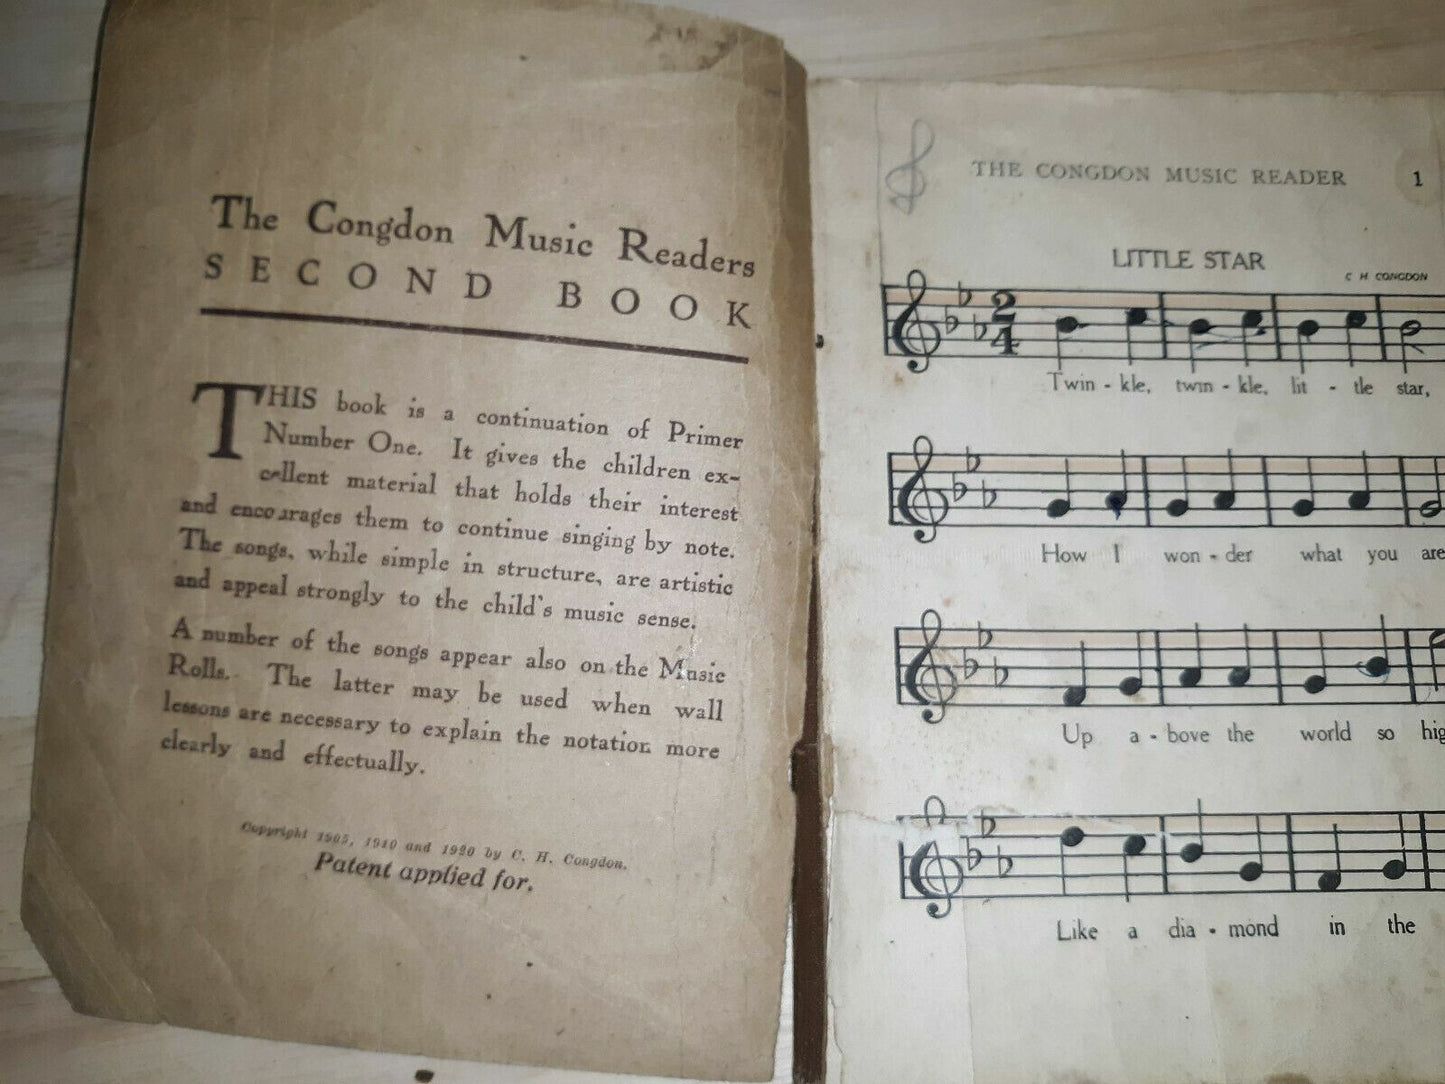 The Congdon Music Readers
SECOND BOOK
THIS book is a continuation of Primer
Number One. It gives the children ex-
cellent material that holds their interest
and encourages them to continue singing by note.
The songs, while simple in structure, are artistic
and appeal strongly to the child's music sense.
A number of the songs appear also on the Music
Rolls. The latter may be used when wall
lessons are necessary to explain the notation more
clearly and effectually.
Copyright 1905, 1910 and 1920 by C. H. Congdon.
Patent applied for.
THE CONGDON MUSIC READER 1
LITTLE STAR
C H CONGDON
2
4
Twin - kle, twin - kle, lit - tle star,
How I won - der what you are
Up a - bove the world so hig
Like a dia - mond in the